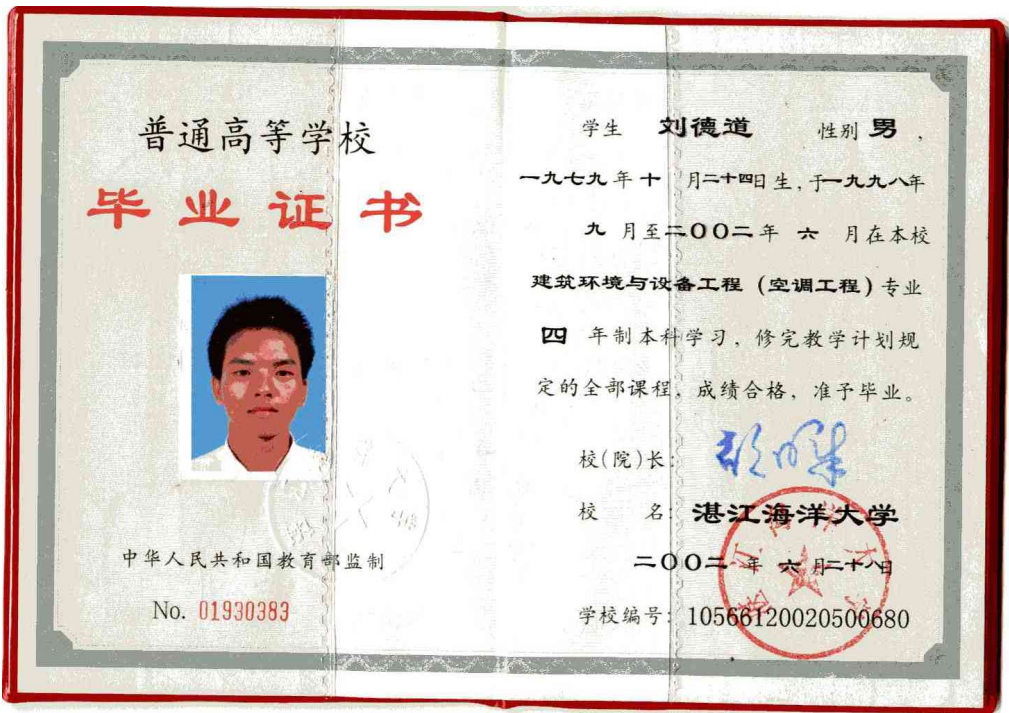 普通高等学校
毕业证书
中华人民共和国教育部监制
No. 01930383
学生 刘德道 性别 男,
一九七九年十 月二十四日生,于一九九八年
九 月至二〇〇二年 六 月在本校
建筑环境与设备工程(空调工程)专业
四 年制本科学习,修完教学计划规
定的全部课程,成绩合格,准予毕业。
校(院)长:
校 名: 湛江海洋大学
二〇〇二 年 六 月二十八日
学校编号: 10566120020500680
湛江海洋大学